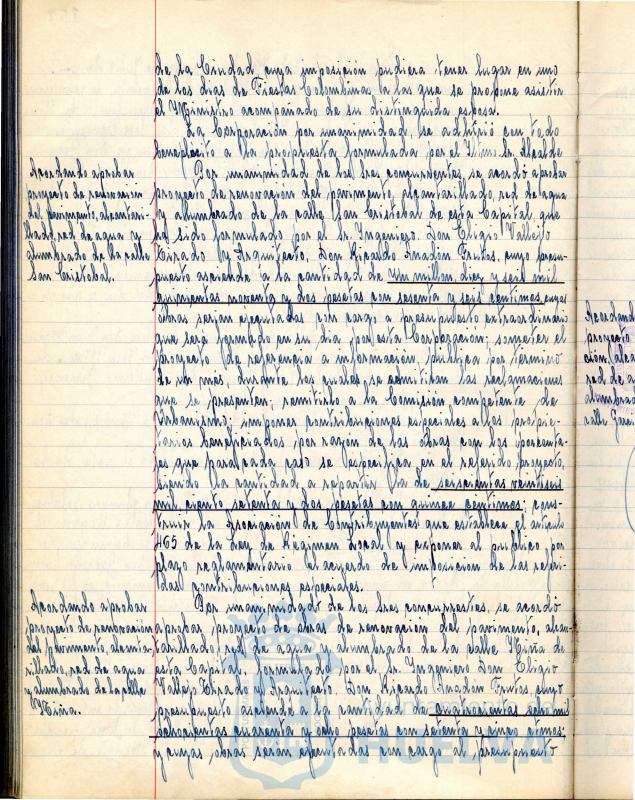 de la Ciudad, cuya imposición pudiera tener lugar en uno
de los días de Fiestas Colombinas, a las que se propone asistir
el Ministro acompañado de su distinguida esposa.
La Corporación por unanimidad, se adhirió con todo
beneplácito a la propuesta formulada por el Iltmo. Sr. Alcalde
Acordando aprobar
proyecto de renovación
del pavimento, alcantari-
llado, red de agua y
alumbrado de la calle
San Cristobal.
Por unanimidad de los Sres concurrentes, se acordó aprobar
proyecto de renovación del pavimento, alcantarillado, red de agua
y alumbrado de la calle San Cristobal de esta Capital, que
ha sido formulado por el Sr. Ingeniero Don Eligio Vallejo
Tirado y Arquitecto, Don Ricardo Anadón Frutos, cuyo presu-
puesto asciende a la cantidad de un millon diez y seis mil
quinientas noventa y dos pesetas con sesenta y seis centimos, cuyas
obras serán ejecutadas con cargo a presupuesto extraordinario
que será formado en su dia por esta Corporación; someter el
proyecto de referencia a información publica por término
de un mes, durante los cuales, se admitiran las reclamaciones
que se presenten; remitirlo a la Comisión competente de
Urbanismo; imponer contribuciones especiales a los propie-
tarios beneficiados por razón de las obras con los porcenta-
jes que para cada caso se especifica en el referido proyecto,
siendo la cantidad a repartir la de seiscientas veintiseis
mil ciento setenta y dos pesetas con quince centimos; cons-
truir la Asociación de Contribuyentes que establece el artículo
465 de la Ley de Régimen Local y exponer al publico por
plazo reglamentario el acuerdo de imposición de las referi-
das contribuciones especiales.
Acordando aprobar
proyecto de renovación
del pavimento, alcanta-
rillado, red de agua
y alumbrado de la calle
Miña.
Por unanimidad de los Sres concurrentes, se acordó
aprobar proyecto de obras de renovación del pavimento, alcan-
tarillado, red de agua y alumbrado de la calle Miña de
esta Capital, formulado por el Sr. Ingeniero Don Eligio
Vallejo Tirado y Arquitecto, Don Ricardo Anadón Frutos, cuyo
presupuesto asciende a la cantidad de cuatrocientas ocho mil
ochocientas cuarenta y ocho pesetas con setenta y cinco ctmos;
y cuyas obras serán ejecutadas con cargo al presupuesto
Acordando
proyecto
ción, alca
red de a
alumbrad
calle
HUELVA